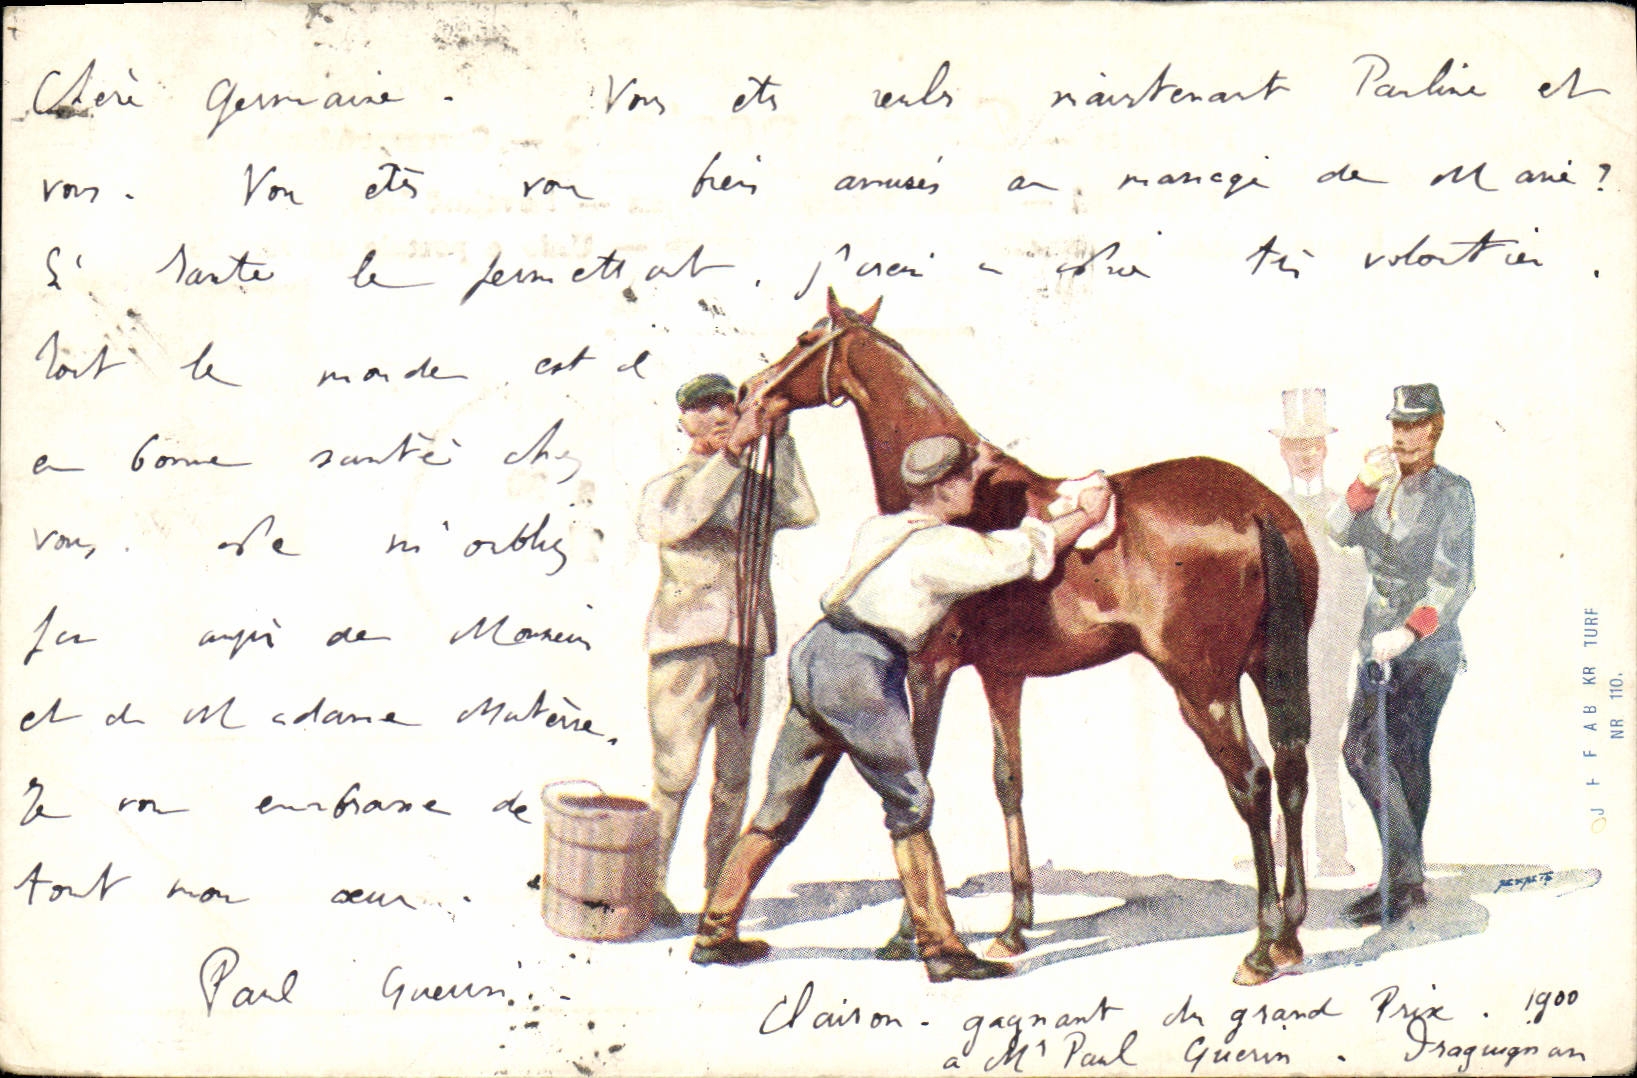 Chère Germaine - Vous etes seules maintenant Pauline et
vous. Vous etes vous bien amusés au mariage de Marie?
Si santé le permettait, j'irai très volontier.
Tout le monde est il
en bonne santé chez
vous. Ne m'oubliez
pas auprès de Monsieur
et de Madame
Je vous embrasse de
tout mon cœur.
Paul Guerin.
Clairon - gagnant du grand Prix. 1900
a Mr Paul Guerin - Draguignan
TURF
NR 110.